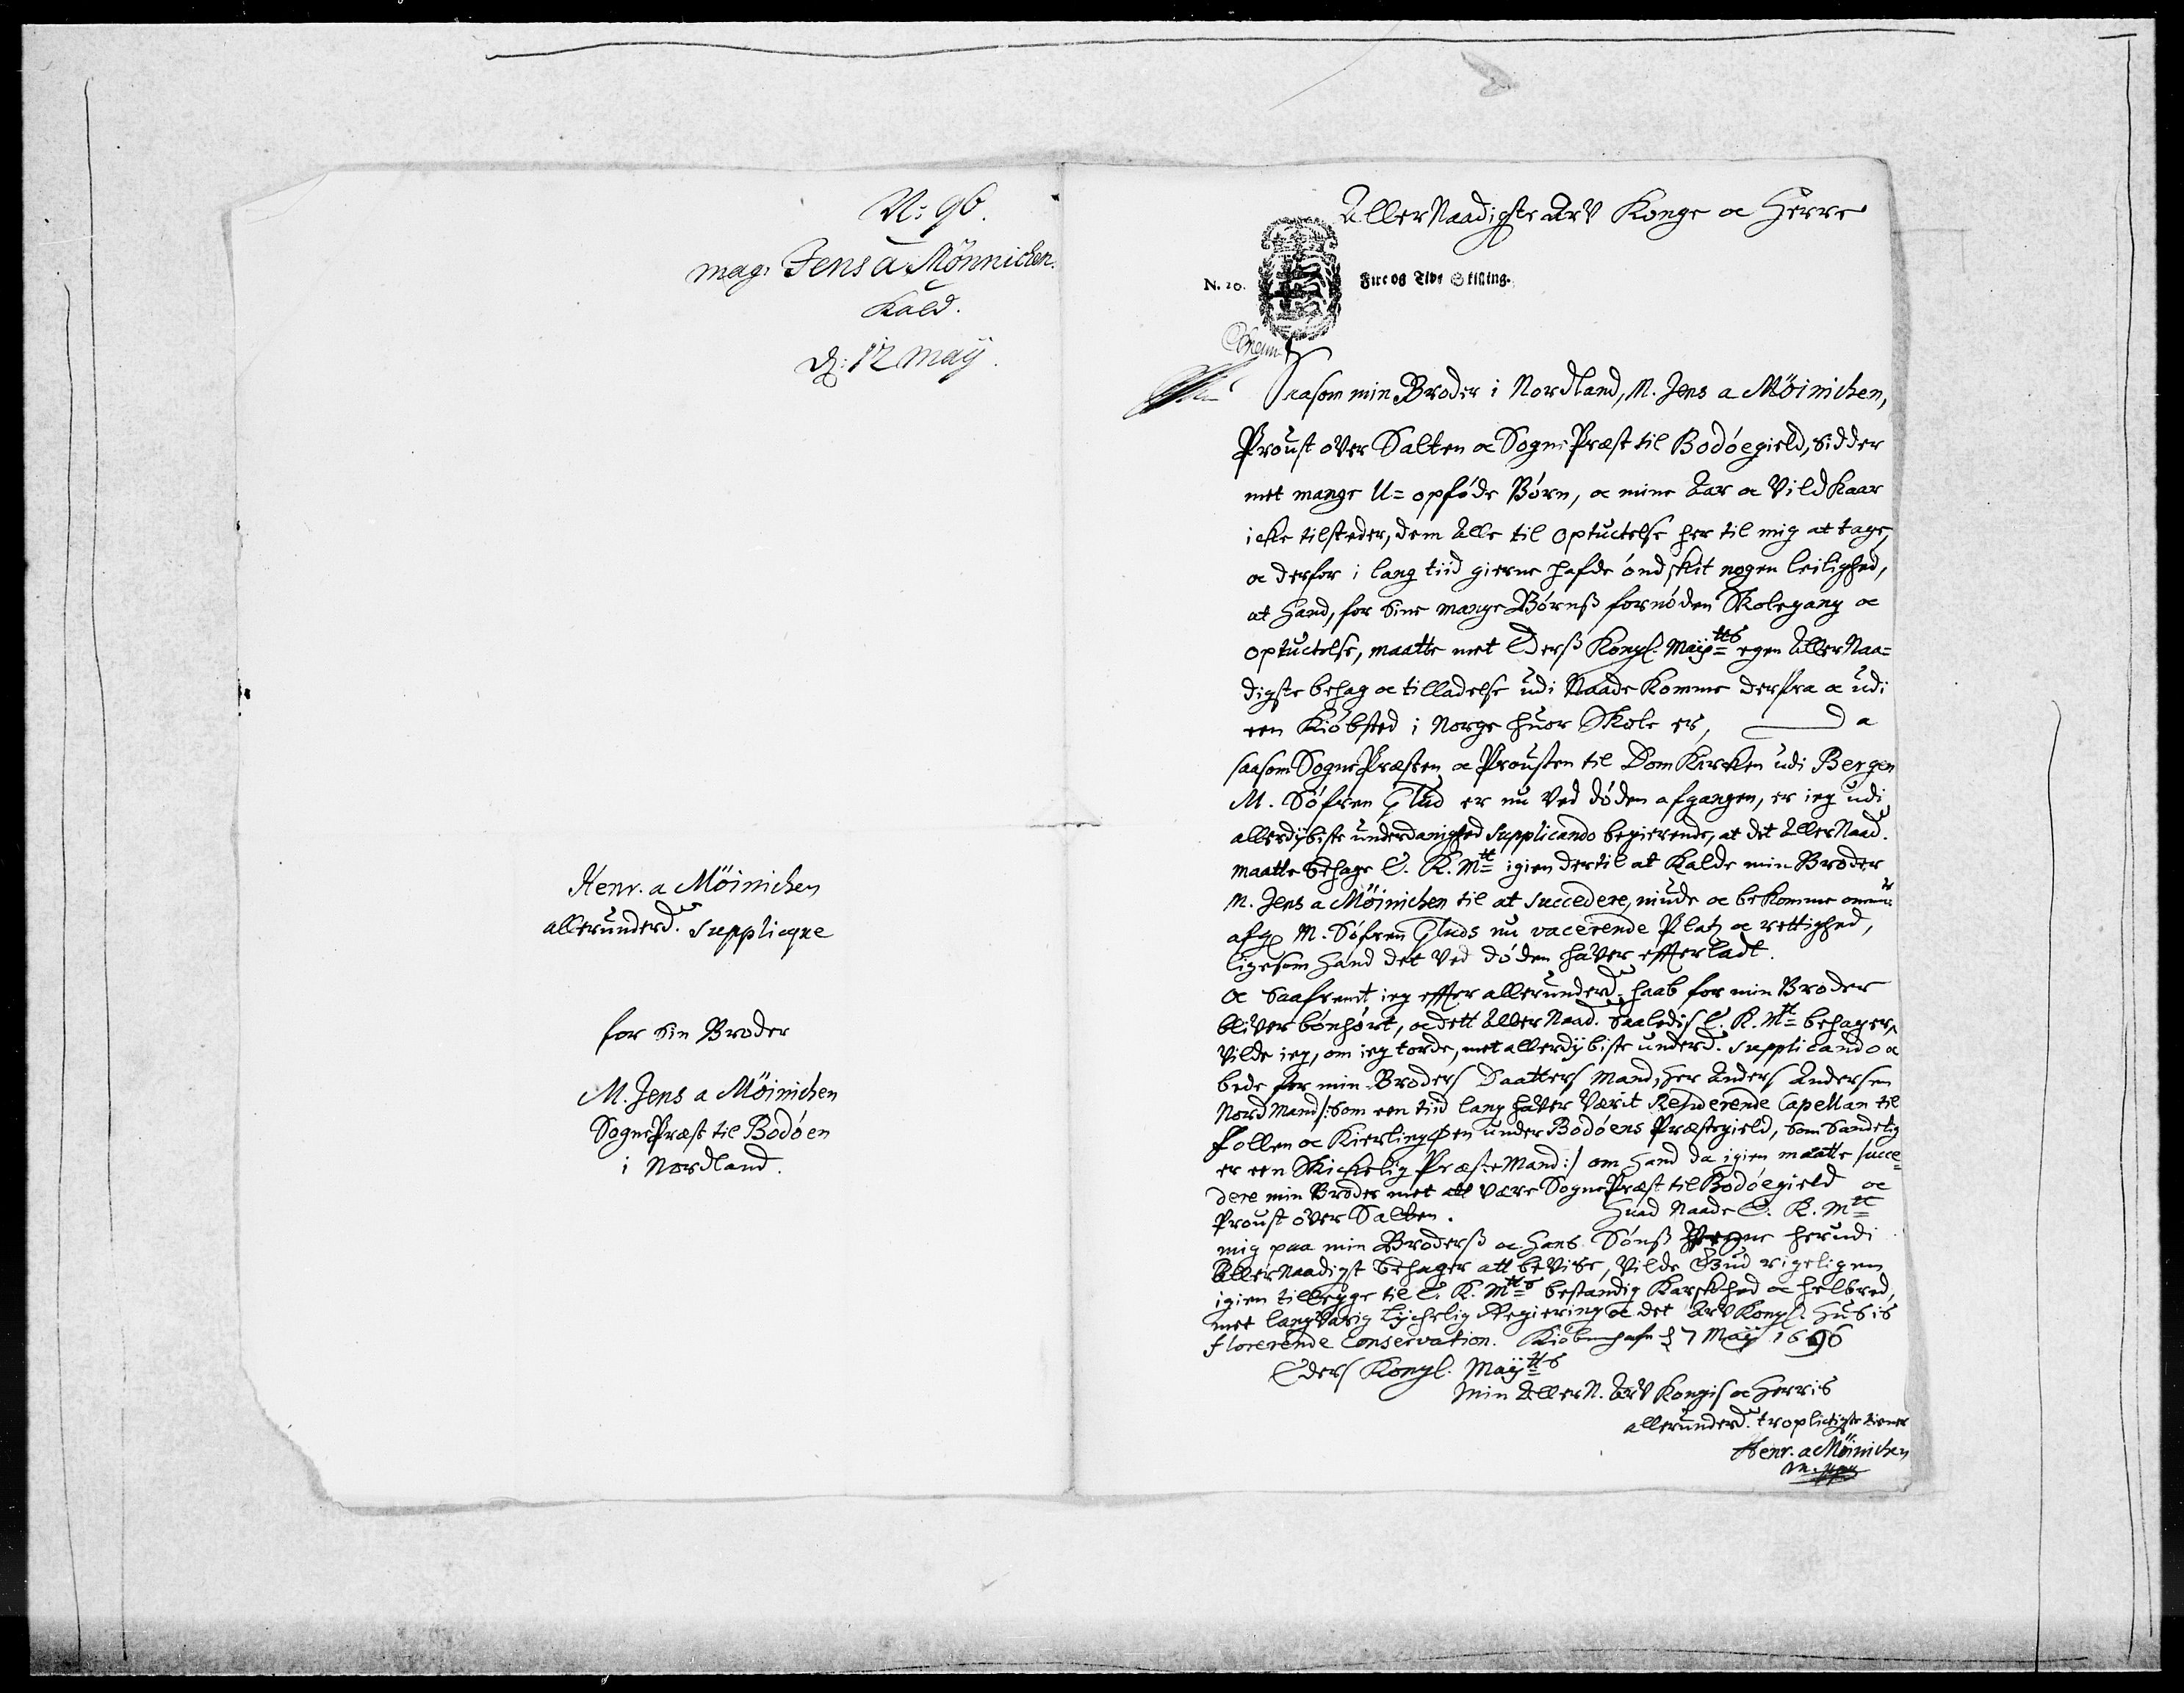 N: 96.
mag: Jens a Mönnichen.
Kald.
d: 12 Maÿ.
Henr. a Möinichen
allerunderd. Supplicqve
for Sin Broder
M. Jens a Möinichen
SognePræst til Bodöen
i Nordland.
AllerNaadigste Arv Konge oc Herre
N. 20. Fire og Tive Skilling.
Saasom min Broder i Nordland, M. Jens a Möinichen,
Proust over Salten oc SognePræst til Bodöegield, sidder
met mange U=opföde Börn, oc mine Aar oc Vildkaar
icke tilsteder, dem Alle til optuctelse her til mig at tage,
oc derfor i lang tiid gierne hafde öndskit nogen leilighed,
at Hand, for Sine mange Börnss fornöden Skolegang oc
optuctelse, maatte met Ederss Kongl. Maÿtts egen AllerNaa=
digste behag oc tilladelse udi Naade Komme derfra oc udi
een Kiöbsted i Norge huor Skole er, Da
saasom SognePræsten oc Prousten til DomKircken udi Bergen
M. Söfren Glud er nu Ved döden afgangen, er ieg udi
allerdÿbiste underdanighed Supplicando begierende, at det AllerNaad.
maatte behage E. K. Mtt igien dertil at Kalde min Broder
M. Jens a Möinichen til at succedere, niude oc bekomme
afg. M. Söfren Gluds nu vacerende Platz oc rettighed,
ligesom Hand det Ved döden haver efterladt.
Oc Saafremt ieg effter allerunderd. haab for min Broder
bliver bönhört, oc dett AllerNaad. Saaledis E. K. Mtt behager,
Vilde ieg, om ieg torde, met allerdÿbiste underd. Supplicando oc
bede for min Broders Daatters Mand, Her Anders Andersen
NordMand /: Som een tiid lang haver Værit Residerende Capellan til
Follen oc KierlingÖen under Bodöens Præstegield, som Sandelig
er een Skickelig PræsteMand :/ om Hand da igien maatte succe=
dere min Broder met att være SognePræst til Bodöegield oc
Proust over Salten. Huad Naade E. K. Mtt
mig paa min Broderss oc Hans Sönss Vegne herudi
AllerNaadigst behager att bevise, Vilde Gud rigeligen
igien tillegge til E. K. Mtts bestandig Karskhed oc helbred,
met langvarig Lÿckelig Regiering oc det Arv Kongl. Husis
florerende Conservation. Kiöbenhafn d 7 Maÿ 1696
Eders Kongl. Maÿtts
Min AllerN. Arv Kongis oc Herris
allerunderd. troplictigste tiener
Henr. a Möinichen